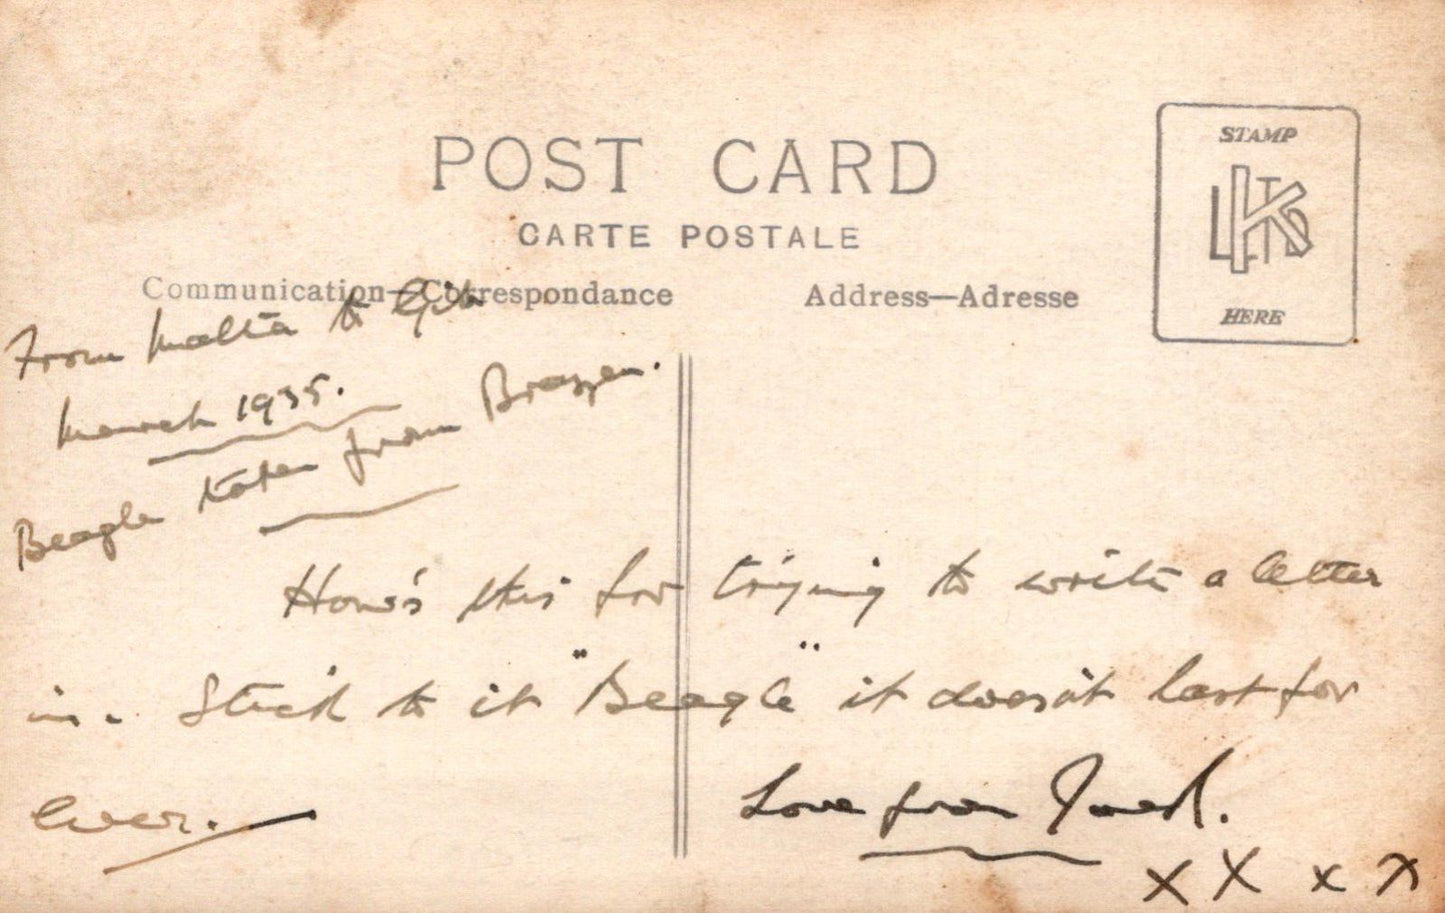 POST CARD
CARTE POSTALE
STAMP
HERE
Communication—Correspondance
Address—Adresse
From Malta to Gib
March 1935.
Beagle taken from Brazen.
How's this for trying to write a letter
in. Stick to it "Beagle" it doesn't last for
ever.
Love from
x X x x